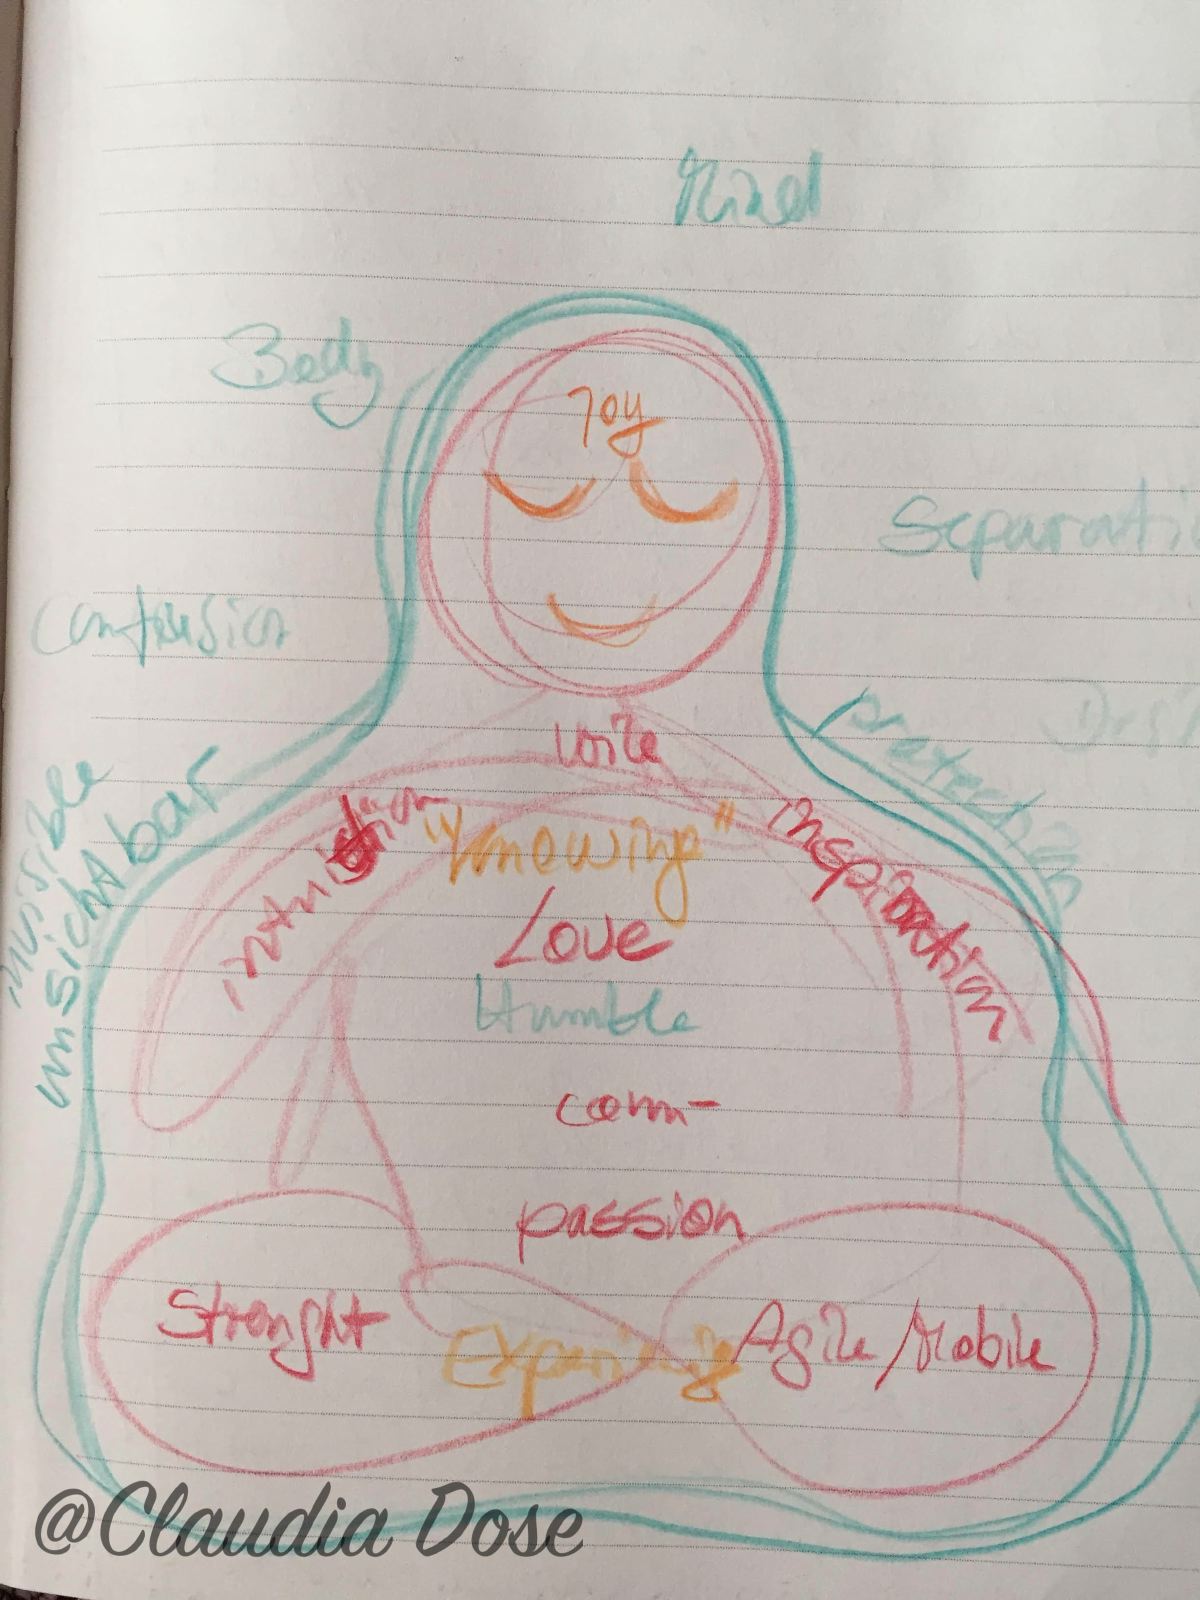 Mind
Body
Joy
Separati
Confusion
Unite
protection
Desi
invisible
unsichtbar
intuition
"Knowing"
inspiration
Love
Humble
com-
passion
Strenght
Agile/Mobile
@Claudia Dose